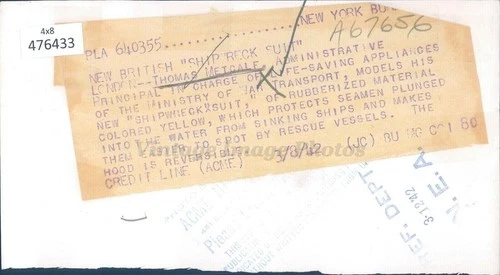 4x8
476433
PLA 640355
NEW YORK BU
A67656
NEW BRITISH "SHIPWRECK SUIT"
LONDON--THOMAS METCALF, ADMINISTRATIVE
PRINCIPAL IN CHARGE OF LIFE-SAVING APPLIANCES
OF THE MINISTRY OF WAR TRANSPORT, MODELS HIS
NEW "SHIPWRECK SUIT," OF RUBBERIZED MATERIAL
COLORED YELLOW, WHICH PROTECTS SEAMEN PLUNGED
INTO THE WATER FROM SINKING SHIPS AND MAKES
THEM EASIER TO SPOT BY RESCUE VESSELS. THE
HOOD IS REVERSIBLE
CREDIT LINE (ACME) 3/8/42 (JC) BU MC 80
Vintage Images Photos
ACME
Please
THIS
REF. DEPT.
3-12-42
N. E. A.